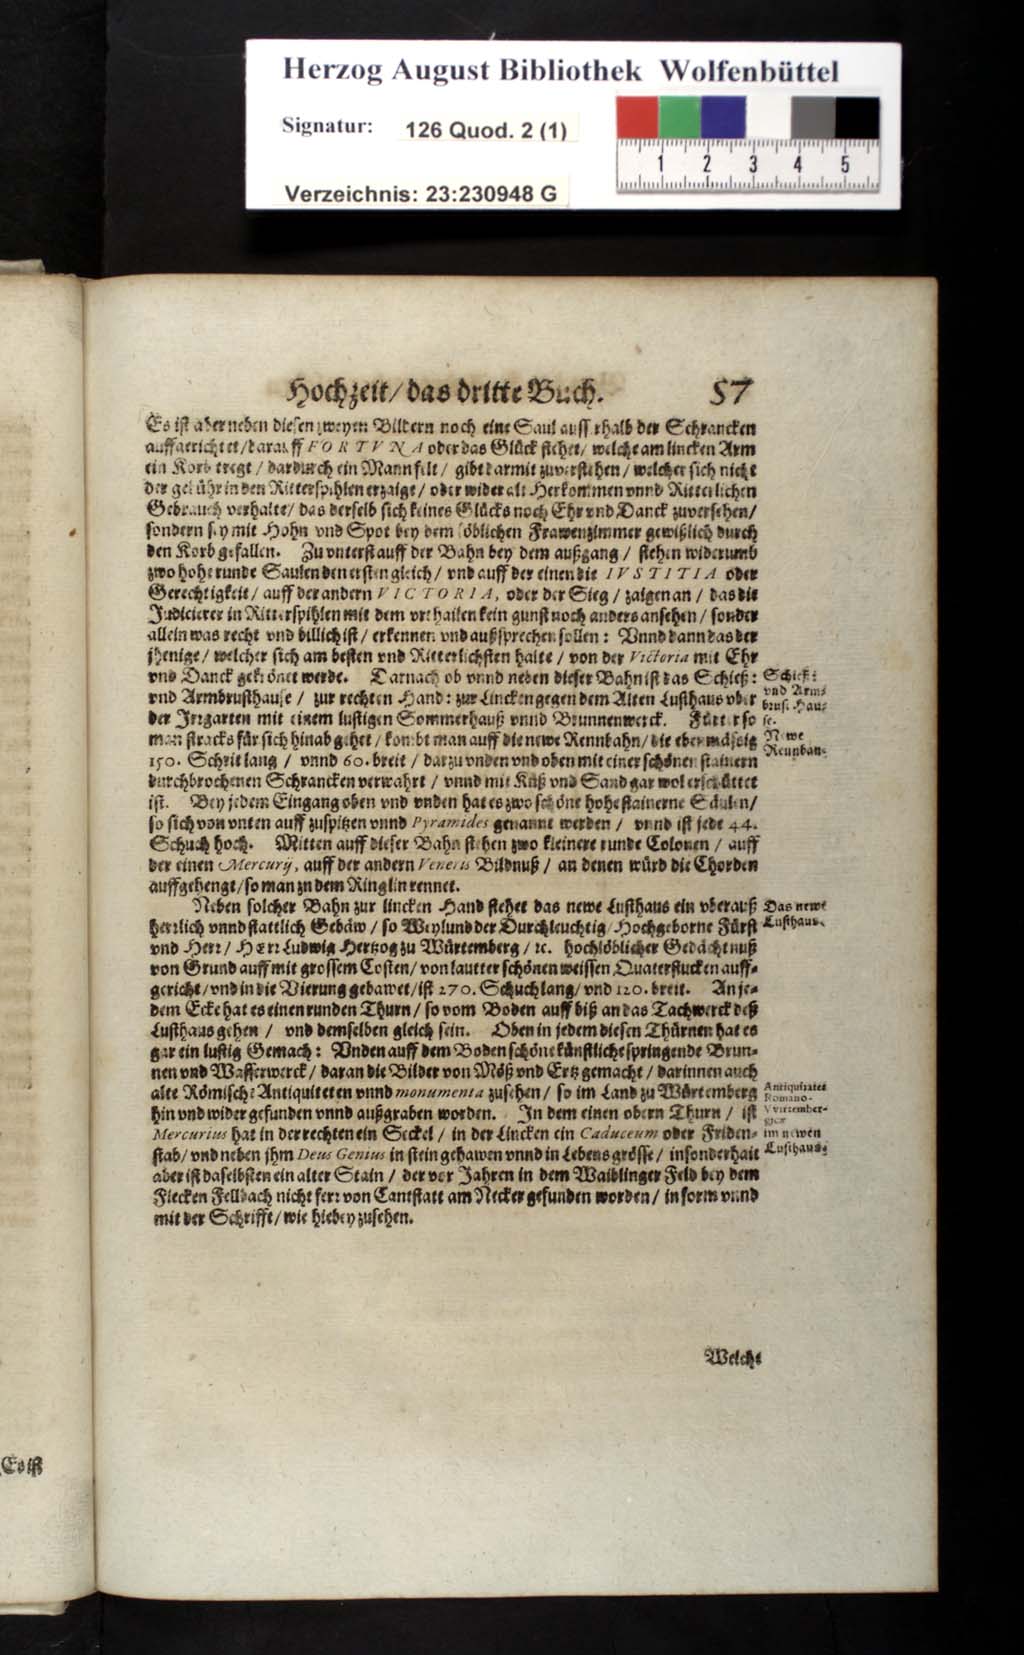 Herzog August Bibliothek Wolfenbüttel
Signatur: 126 Quod. 2 (1)
1 2 3 4 5
Verzeichnis: 23:230948 G
Hochzeit/ das dritte Buch. 57
Es ist aber neben diesen zweyen Bildern noch eine Saul ausserhalb der Schrancken
auffgerichtet/ darauff FORTVNA oder das Glück stehet/ welche am lincken Arm
ein Korb tregt/ dardurch ein Mann felt/ gibt darmit zuverstehen/ welcher sich nicht
der gebühr in den Ritterspihlen erzaigt/ oder wider alt Herkommen vnnd Ritterlichen
Gebrauch verhalte/ das derselb sich keines Glücks noch Ehr vnd Danck zuversehen/
sondern sey mit Hohn vnd Spot bey dem löblichen Frawenzimmer gewißlich durch
den Korb gefallen. Zu vnterst auff der Bahn bey dem außgang/ stehen widerumb
zwo hohe runde Saulen den ersten gleich/ vnd auff der einen die IVSTITIA oder
Gerechtigkeit/ auff der andern VICTORIA, oder der Sieg/ zaigen an/ das die
Judicierer in Ritterspihlen mit dem vrthailen kein gunst noch anders ansehen/ sonder
allein was recht vnd billich ist/ erkennen vnd außsprechen sollen: Vnnd dann das der
jhenige/ welcher sich am besten vnd Ritterlichsten halte/ von der Victoria mit Ehr
vnd Danck gekrönet werde. Darnach ob vnnd neben dieser Bahn ist das Schieß:
vnd Armbrusthause/ zur rechten Hand: zur Lincken gegen dem Alten Lusthaus vber
der Irrgarten mit einem lustigen Sommerhauß vnnd Brunnenwerck. Fürter so
man stracks für sich hinab gehet/ kombt man auff die newe Rennbahn/ die ebenmässig
150. Schrit lang/ vnnd 60. breit/ darzu vnden vnd oben mit einer schönen stainern
durchbrochenen Schrancken verwahrt/ vnnd mit Küß vnd Sand gar wol erschüttet
ist. Bey jedem Eingang oben vnd vnden hat es zwo schöne hohe stainerne Säulen/
so sich von vnten auff zuspitzen vnnd Pyramides genannt werden/ vnnd ist jede 44.
Schuch hoch. Mitten auff dieser Bahn stehen zwo kleinere runde Colonen/ auff
der einen Mercurij, auff der andern Veneris Bildnuß/ an denen würd die Chorden
auffgehengt/ so man zu dem Ringlin rennet.
Schieß:
vnd Arm-
brust Hau-
se.
Newe
Rennban-
Neben solcher Bahn zur lincken Hand stehet das newe Lusthaus ein vberauß
herrlich vnnd stattlich Gebäw/ so Weylund der Durchleuchtig/ Hochgeborne Fürst
vnd Herr/ Herr Ludwig Hertzog zu Würtemberg/ ꝛc. hochlöblicher Gedächtnuß
von Grund auff mit grossem Costen/ von lautter schönen weissen Quaterstucken auff-
gericht/ vnd in die Vierung gebawet/ ist 270. Schuch lang/ vnd 120. breit. An je-
dem Ecke hat es einen runden Thurn/ so vom Boden auff biß an das Tachwerck deß
Lusthaus gehen/ vnd demselben gleich sein. Oben in jedem diesen Thürnen hat es
gar ein lustig Gemach: Vnden auff dem Boden schöne künstliche springende Brun-
nen vnd Wasserwerck/ daran die Bilder von Möß vnd Ertz gemacht/ darinnen auch
alte Römische Antiquiteten vnnd monumenta zusehen/ so im Land zu Würtemberg
hin vnd wider gefunden vnnd außgraben worden. In dem einen obern Thurn/ ist
Mercurius hat in der rechten ein Seckel/ in der Lincken ein Caduceum oder Friden-
stab/ vnd neben jhm Deus Genius in stein gehawen vnnd in Lebens grösse/ insonderhait
aber ist daselbsten ein alter Stain/ der vor Jahren in dem Waiblinger Feld bey dem
Flecken Fellbach nicht fern von Cantstatt am Necker gefunden worden/ in form vnnd
mit der Schrifft/ wie hiebey zusehen.
Das newe
Lusthaus.
Antiquitates
Romano-
Vvirtember-
gicæ
im newen
Lusthaus.
Welche
Es iß